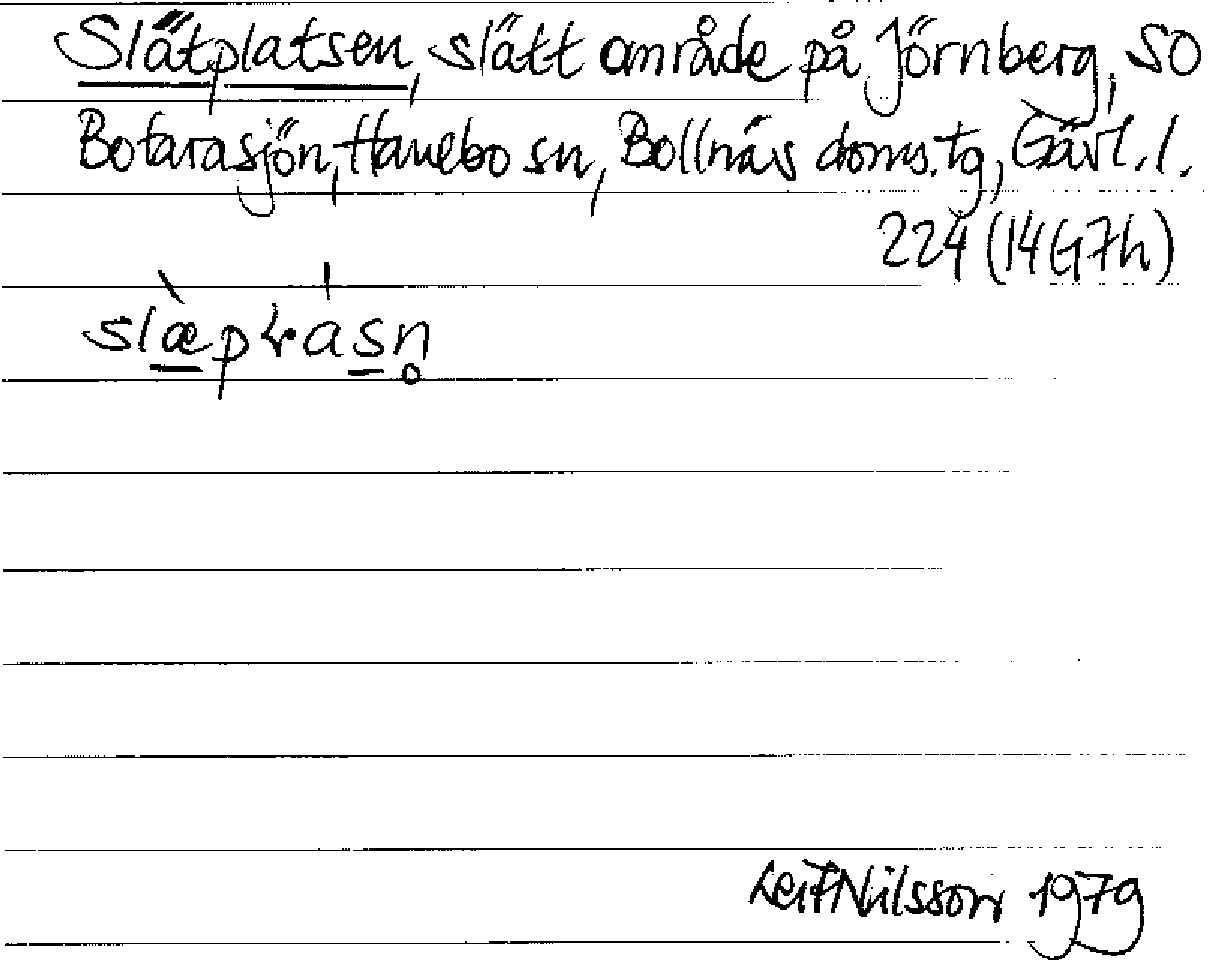 Slätplatsen, slätt område på Jörnberg, SO
Botarasjön, Hanebo sn, Bollnäs doms.tg, Gävl. l.
224 (14G7h)
Leif Nilsson 1979